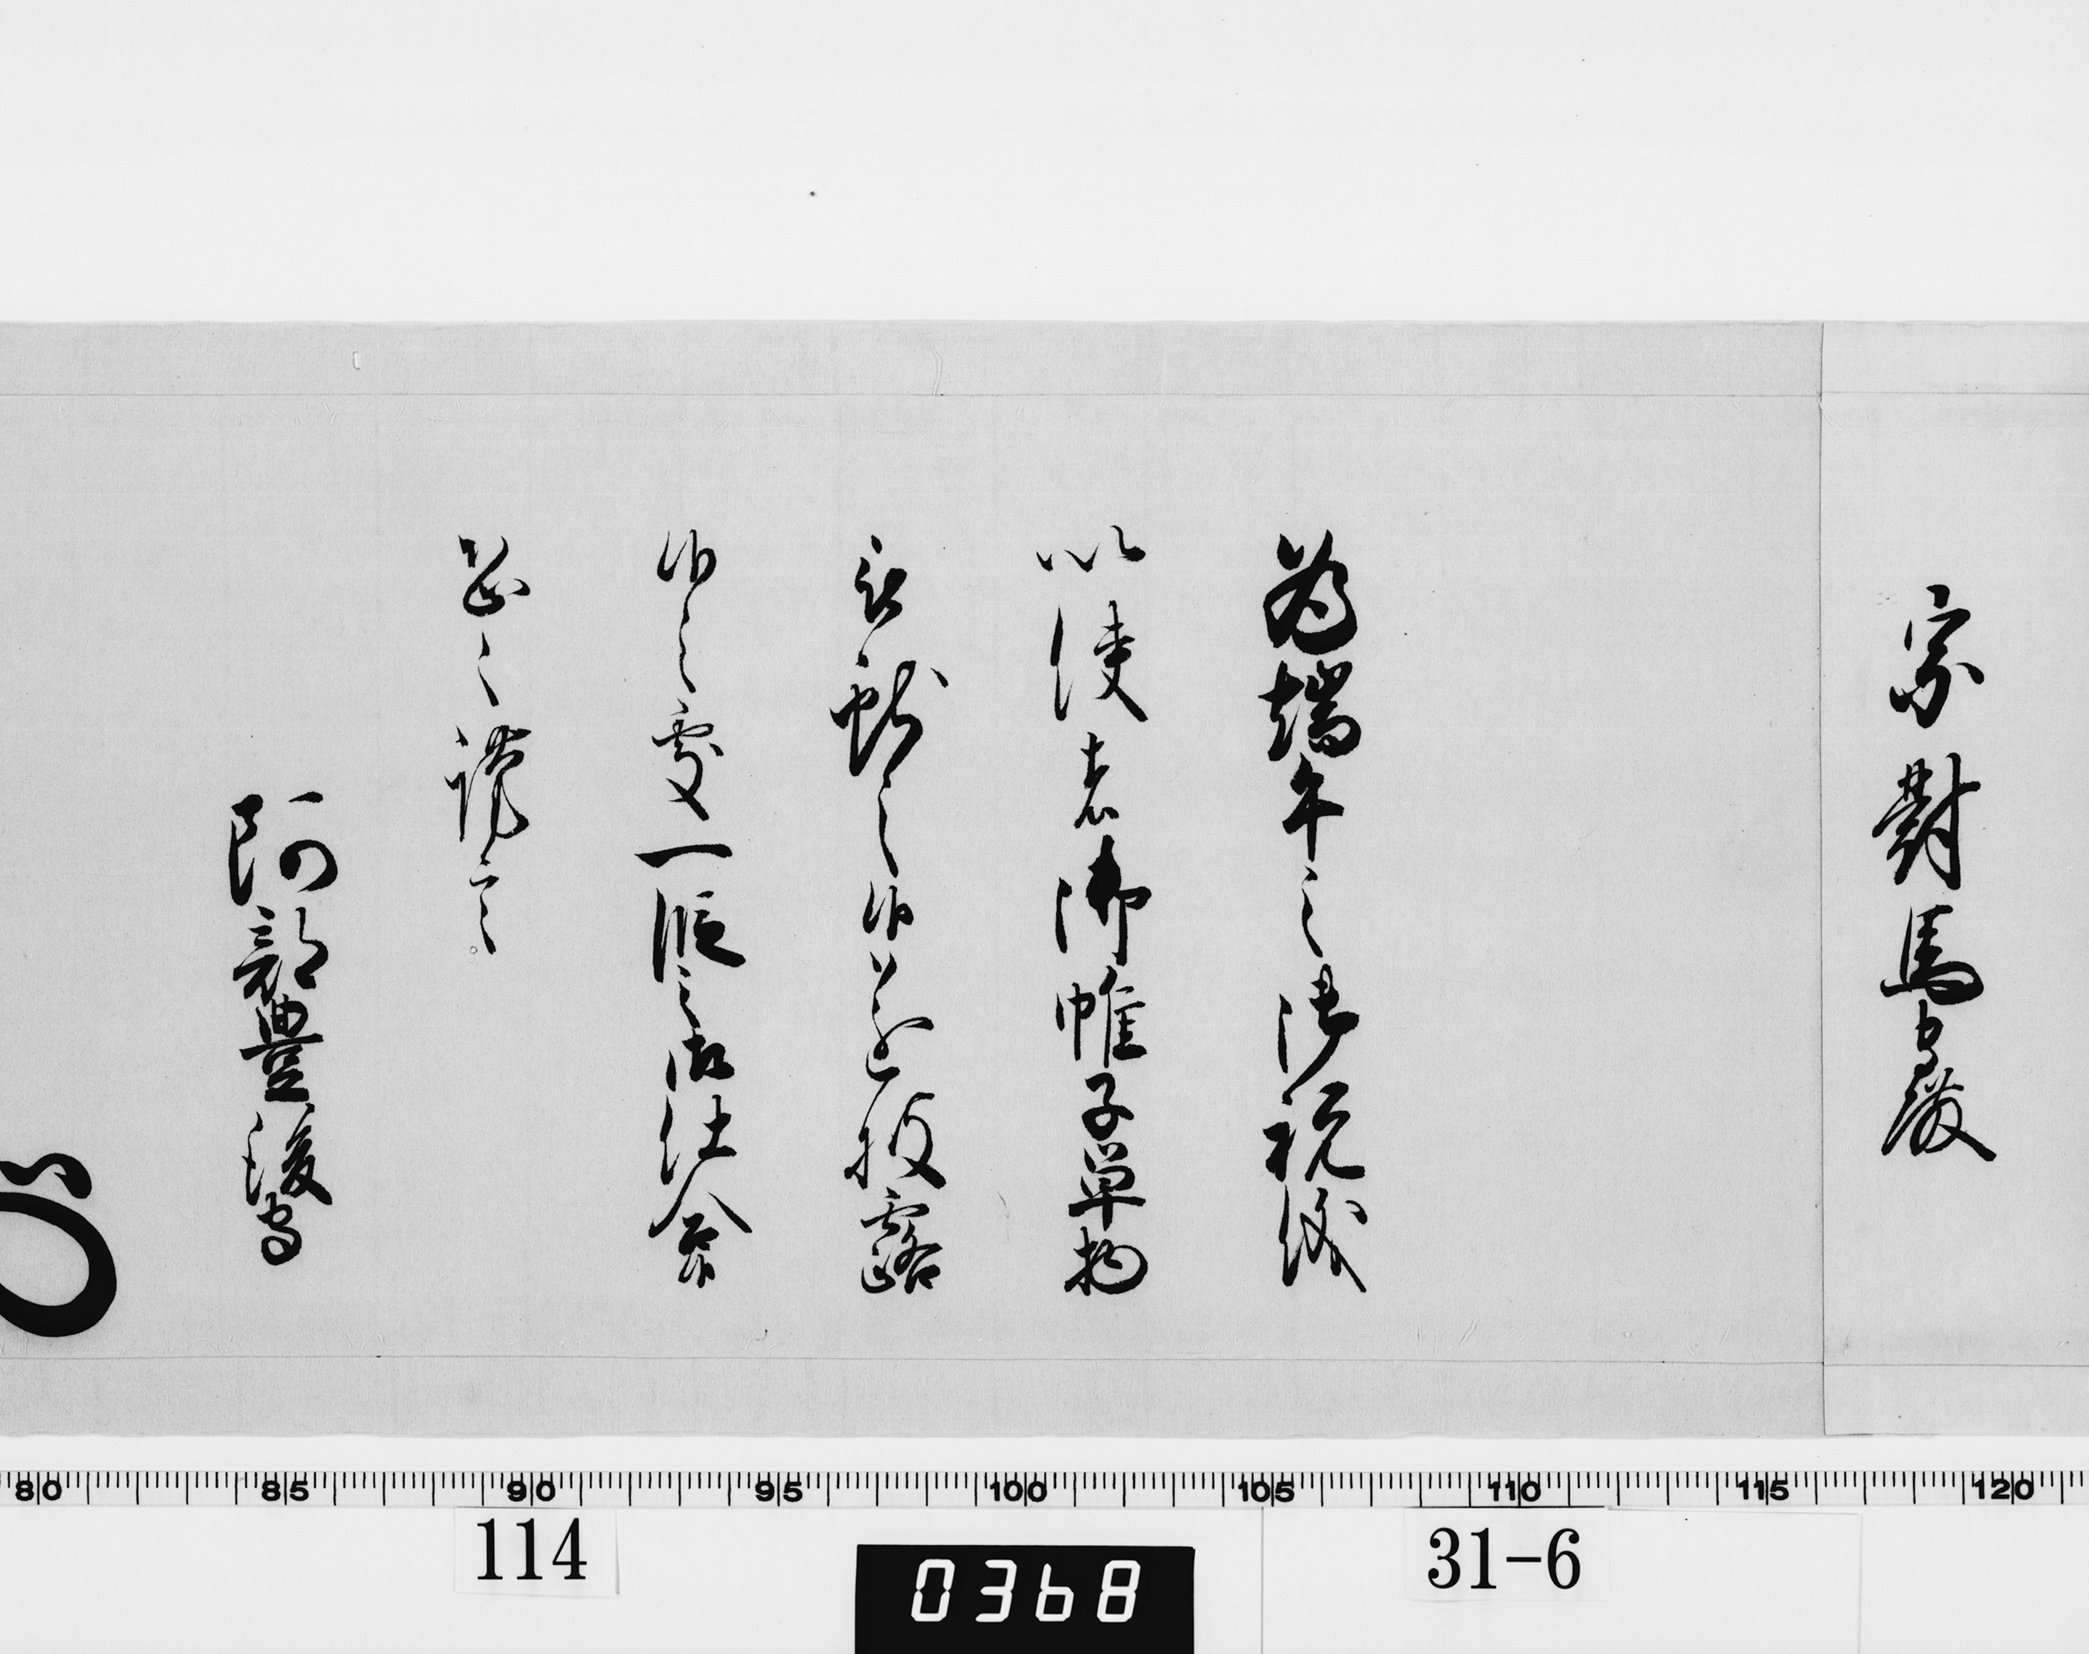 宗對馬守殿
為端午之御祝儀
以使者御帷子單物
被献之候遂披露
候之處一段之御仕合候
恐々謹言
阿部豊後守
80 85 90 95 100 105 110 115 120
114
0368
31-6